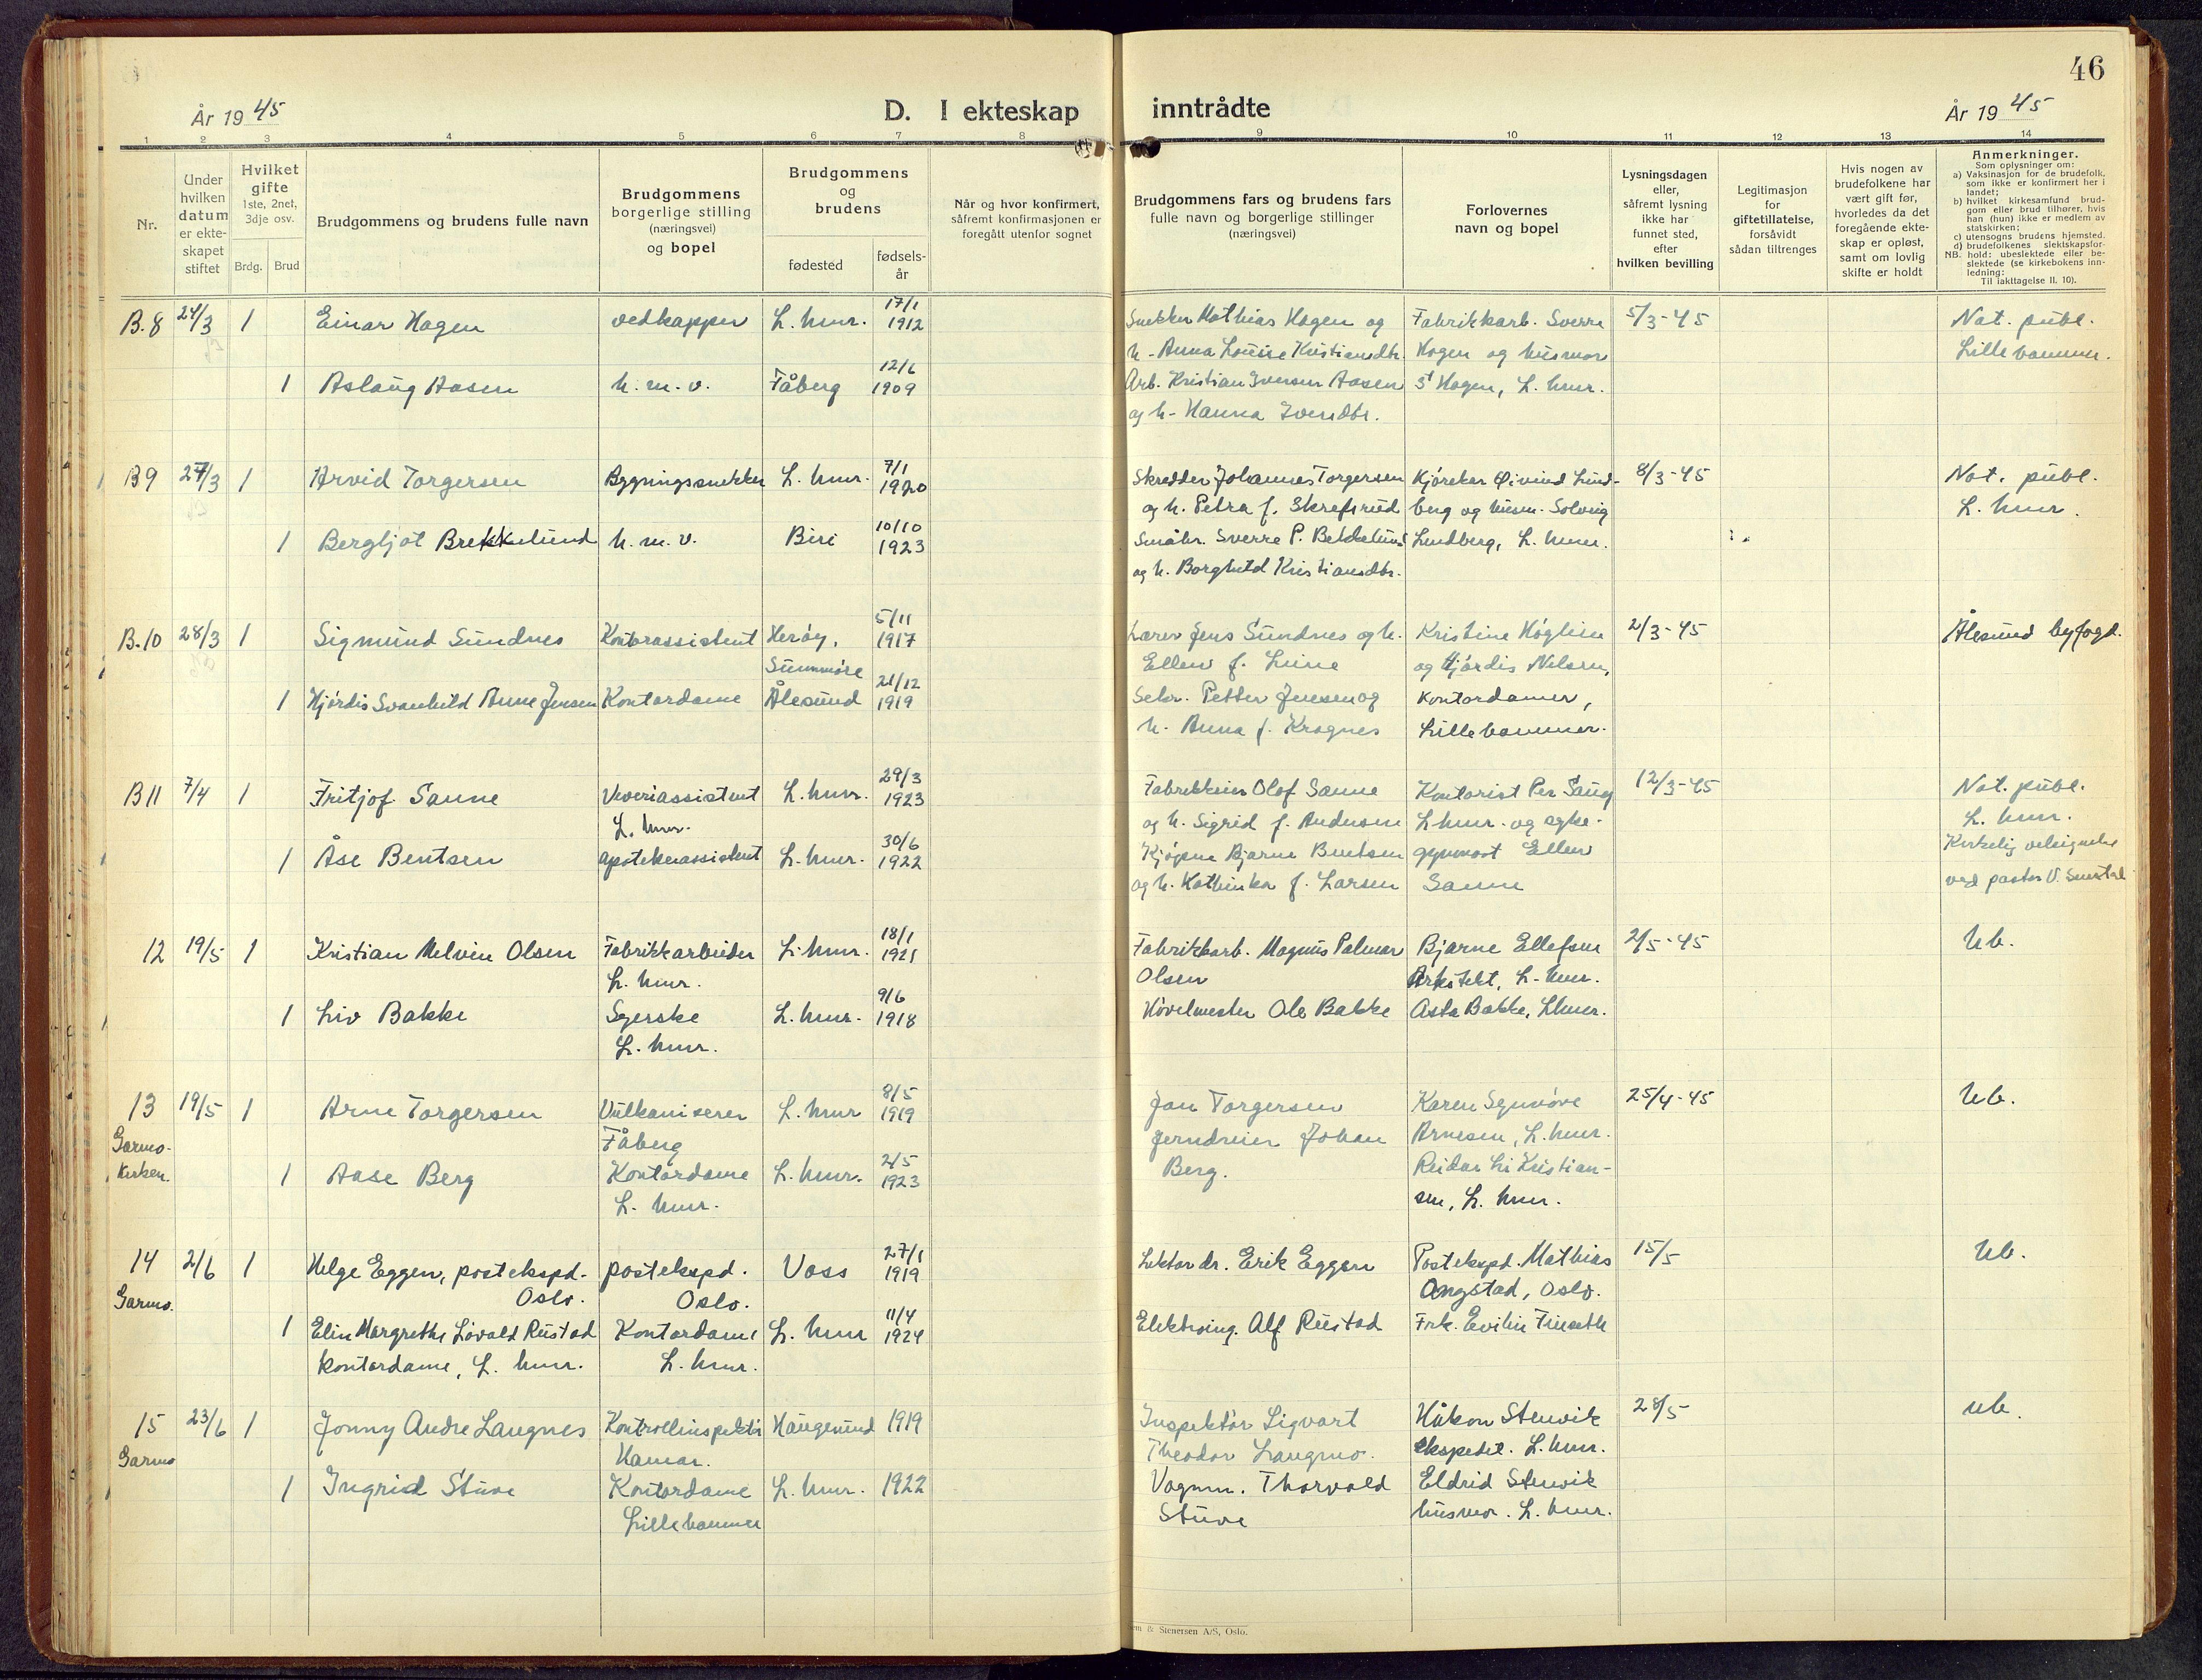 46
År 1945
D. I ekteskap inntrådte
År 1945
1 2 3 4 5 6 7 8 9 10 11 12 13 14
Nr.
Under hvilken datum er ekteskapet stiftet
Hvilket gifte 1ste, 2net, 3dje osv.
Brdg. Brud
Brudgommens og brudens fulle navn
Brudgommens borgerlige stilling (næringsvei) og bopel
Brudgommens og brudens
fødested
fødsels-år
Når og hvor konfirmert, såfremt konfirmasjonen er foregått utenfor sognet
Brudgommens fars og brudens fars fulle navn og borgerlige stillinger (næringsvei)
Forlovernes navn og bopel
Lysningsdagen eller, såfremt lysning ikke har funnet sted, efter hvilken bevilling
Legitimasjon for giftetillatelse, forsåvidt sådan tiltrenges
Hvis nogen av brudefolkene har vært gift før, hvorledes da det foregående ekteskap er opløst, samt om lovlig skifte er holdt
Anmerkninger.
Som oplysninger om:
a) Vaksinasjon for de brudefolk, som ikke er konfirmert her i landet;
b) hvilket kirkesamfund brudgom eller brud tilhører, hvis han (hun) ikke er medlem av statskirken;
c) utensogns brudens hjemsted.
d) brudefolkenes slektskapsforhold: ubeslektede eller beslektede (se kirkebokens innledning:
NB.
Til iakttagelse II. 10).
B.8 24/3 1 Einar Hagen vedkapper L. hmr. 17/1 1912
Snekker Mathias Hagen og Fabrikkarb. Sverre 5/3-45 Not. publ.
h. Anna Louise Kristiansdtr. Hagen og husmor Lillehammer.
1 Aslaug Aasen h.m.v. Fåberg 12/6 1909
Arb. Kristian Iversen Aasen st Hagen, L. hmr.
og h. Hanna Iversdtr.
B9 27/3 1 Arvid Torgersen Bygningssnekker L. hmr. 7/1 1920
Skredder Johannes Torgersen Kjørekar Øivind Lund- 8/3-45 Not. publ.
og h. Petra f. Skrefsrud berg og husm. Solveig L. hmr.
1 Bergljot Brekkelund h.m.v. Biri 10/10 1923
Småbr. Sverre P. Bekkelund Lundberg, L. hmr.
og h. Borghild Kristiansdtr.
B.10 28/3 1 Sigmund Sundnes Kontorassistent Herøy, Sunnmøre 5/11 1917
Lærer Jens Sundnes og h. Kristine Høglien 2/3-45 Ålesund byfogd.
Ellen f. Leine og Hjørdis Nilsen,
1 Hjørdis Svanhild Anne Jensen Kontordame Ålesund 21/12 1919
Petter Jensen og kontordamer,
h. Anna f. Krognes Lillehammer.
B11 7/4 1 Fritjof Sanne Veveriassistent L. hmr. L. hmr. 29/3 1923
Fabrikkeier Olof Sanne Kontorist Per Saug 12/3-45 Not. publ.
og h. Sigrid f. Andersen L hmr. og syke- L. hmr.
1 Åse Bentsen apotekerassistent L. hmr. 30/6 1922
Kjøpm Bjarne Bentsen gymnast Ellen Kirkelig velsignelse
og h. Kathinka f. Larsen Sanne ved pastor V.
12 19/5 1 Kristian Melvin Olsen Fabrikkarbeider L. hmr. L. hmr. 18/1 1921
Fabrikkarb. Magnus Palmar Bjarne Ellefsen 2/5-45 Ub.
Olsen Arkitekt, L. hmr.
1 Liv Bakke Syerske L. hmr. L. hmr. 9/6 1918
Høvelmester Ole Bakke Asta Bakke, Lhmr.
13 19/5 1 Arne Torgersen Vulkaniserer Fåberg L. hmr 8/5 1919
Garmo-kirken.
Jan Torgersen Karen Synnøve 25/4-45 Ub.
Jerndreier Johan Arnesen, L. hmr.
1 Aase Berg Kontordame L. hmr. L. hmr. 2/5 1923
Berg. Reidar Li Kristian-
sen, L. hmr.
14 2/6 1 Helge Eggen, postekspd. Oslo. postekspd. Oslo. Voss 27/1 1919
Garmo.
Lektor dr. Erik Eggen Postekspd. Mathias 15/5 Ub.
Angstad, Oslo.
1 Elin Margrethe Løvald Rustad Kontordame L. hmr 11/4 1924
kontordame, L. hmr. L. hmr.
Elektroing. Alf Rustad Frk. Evilin Fineth
15 23/6 1 Jonny Andre Langnes Kontrollinspektør Hamar. Haugesund 1919
Garmo
Inspektør Sigvart Håkon Stenvik 28/5 ub.
Theodor Langmo. ekspedit. L. hmr.
1 Ingrid Stuve Kontordame Lillehammer L. hmr. 1922
Vognm. Thorvald Eldrid Stenvik
Stuve husmor. L. hmr.
& Stenersen A/S, Oslo.